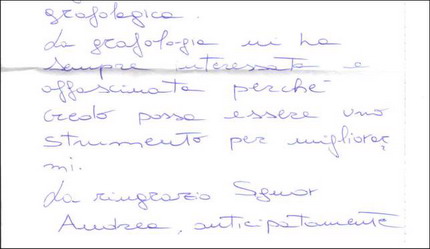 grafologica.
La grafologia mi ha
sempre interessata e
affascinata perché
credo possa essere uno
strumento per migliorar
mi.
La ringrazio Signor
Andrea, anticipatamente